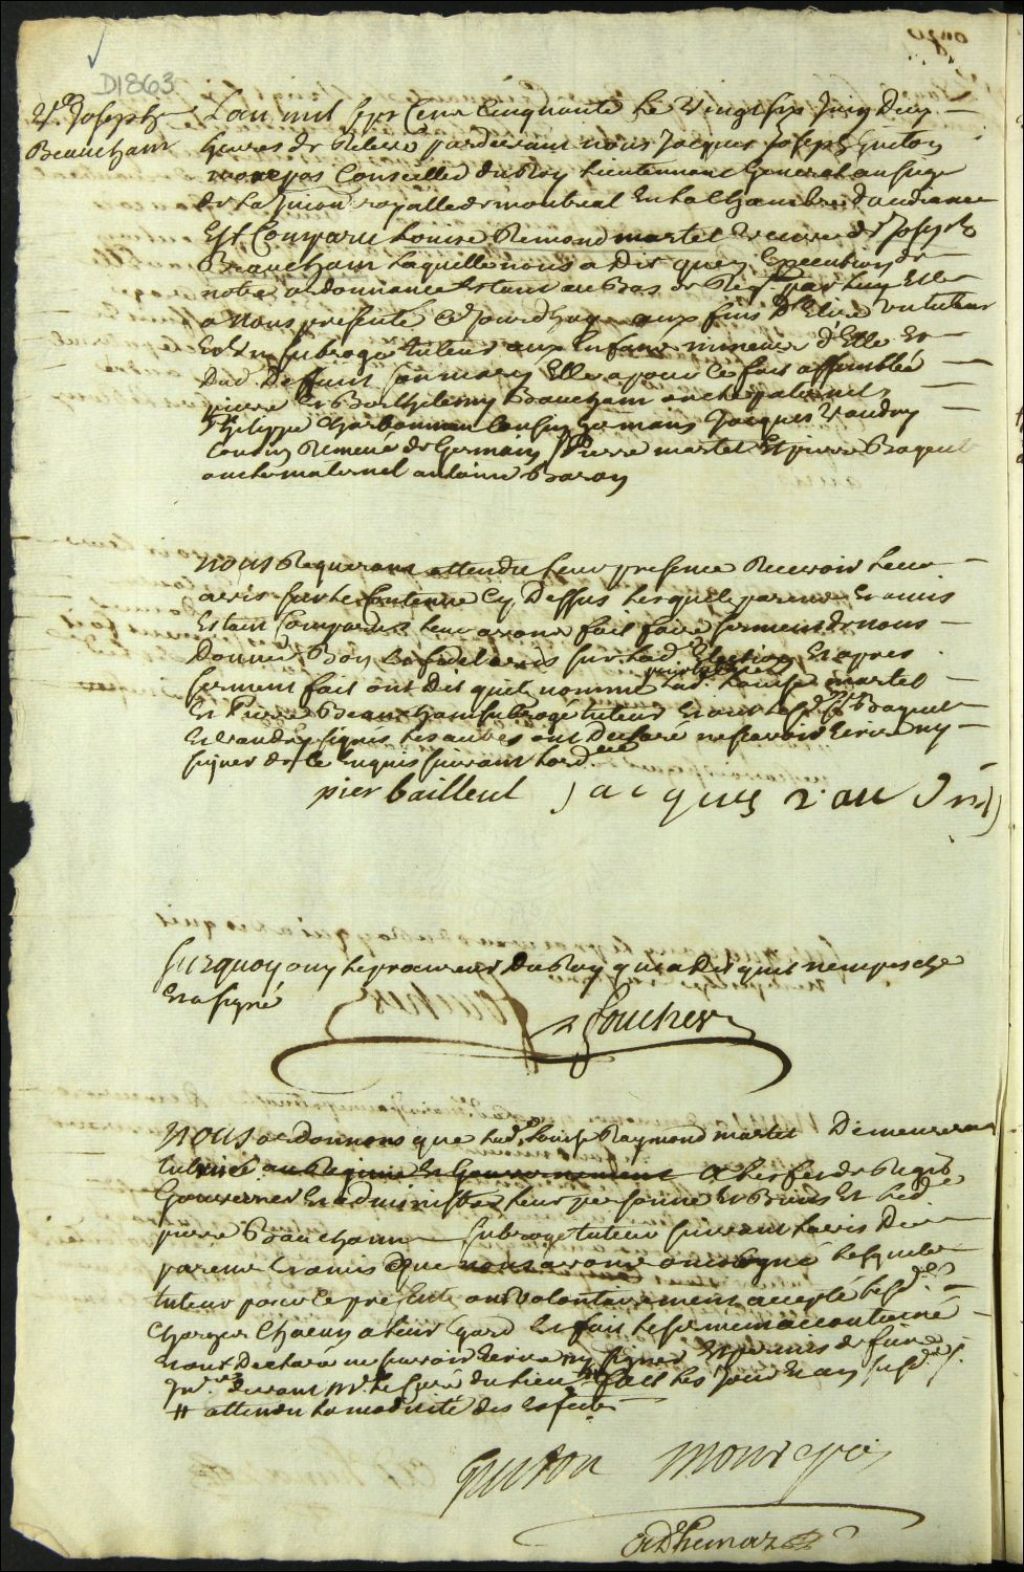 D1863
Ve Joseph
Beaucham
L'an mil sept Cent Cinquante le Vingt six Juin Deux
heures de Relevé pardevant nous Jacques Joseph Guiton
monrepos Conseiller du Roy Lieutennant General au siege
de la Juron royalle de montreal En la Chambre d'audiance
Est Comparu Louise Remond martel Veuve de Joseph
Beaucham Laquelle nous a Dit quen Execution de
notre ordonnance Estant au Bas de Reqte par luy Elle
a Nous presenté Ce Jourd'huy aux fins D'Elire un tuteur
Et un subrogé tuteur aux Enfans mineurs d'Elle Et
Dud Deffunt son mary Elle a pour Ce fait assemblée
pierre Et Barthelemy Beaucham oncle paternel,
Philippe Charbonneau Cousin Germains Jacques Vaudry
Cousin Remué de Germain Pierre martel Et pierre Bageul
oncle maternel antoine Bazon
nous Requerant attendu leur presence Recevoir leur
avis sur le Contenue Cy Dessus lesquels parens Et amis
Estant Comparus leur avons fait faire serment de nous
Donner Bon Et fidel avis sur lad Election Et apres
serment fait ont Dit quils nomme lad. Louise martel
Et Pierre Beaucham subrogé tuteur Et ont lesd Bagueul
Et Vaudry signés les autres ont Declaré ne scavoir Ecrire ny
signer de ce Enquis suivant lord.ce
pier bailleul Jacques vau dri
surquoy ouy le procureur Du Roy qui a Dit quil n'empesche
Et a signé
foucher
nous ordonnons que lad. Louise Raymond martel Demeurera
tutrice au Regime Et Gouvernement a L'effet de Regir
Gouverner Et administrer leur personne Et Biens Et led.
pierre Beauchamp subrogé tuteur suivant l'avis De
parens Et amis que nous avons omologué lesquels
tuteur pour ce present ont volontairement accepté lesd.
Charges Chacun a leur Egard Et fait le serment accoutumé
Et ont Declaré ne scavoir Ecrire ny signer Et permis de faire
Inv.re devant Mr. le Curé du lieu # fait les Jour Et an susd.
# attendu la modicité des Effets
Guiton Monrepos
Adhemar